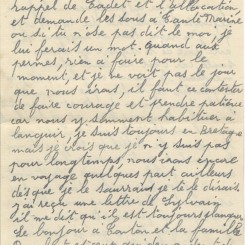 rappel de Cadet et l'allocation
et demande les sous à Tante Marine
ou si tu n'ose pas dit le moi, je
lui ferais un mot. Quand aux
permes, rien a faire pour le
moment, et je ne voit pas le jour
que nous irons, il faut se contenter
de faire courage et prendre patience
car nous y sommes habituer a
languir, je suis toujours en Bretagne
mais je crois que je n'y suis pas
pour longtemps, nous irons encore
en voyage quelques part ailleurs
dès que je le saurrais je te le dirais.
J'ai reçu une lettre de Sylvain
il me dit qu'il est toujours
Le bonjour a Tonton et la famille